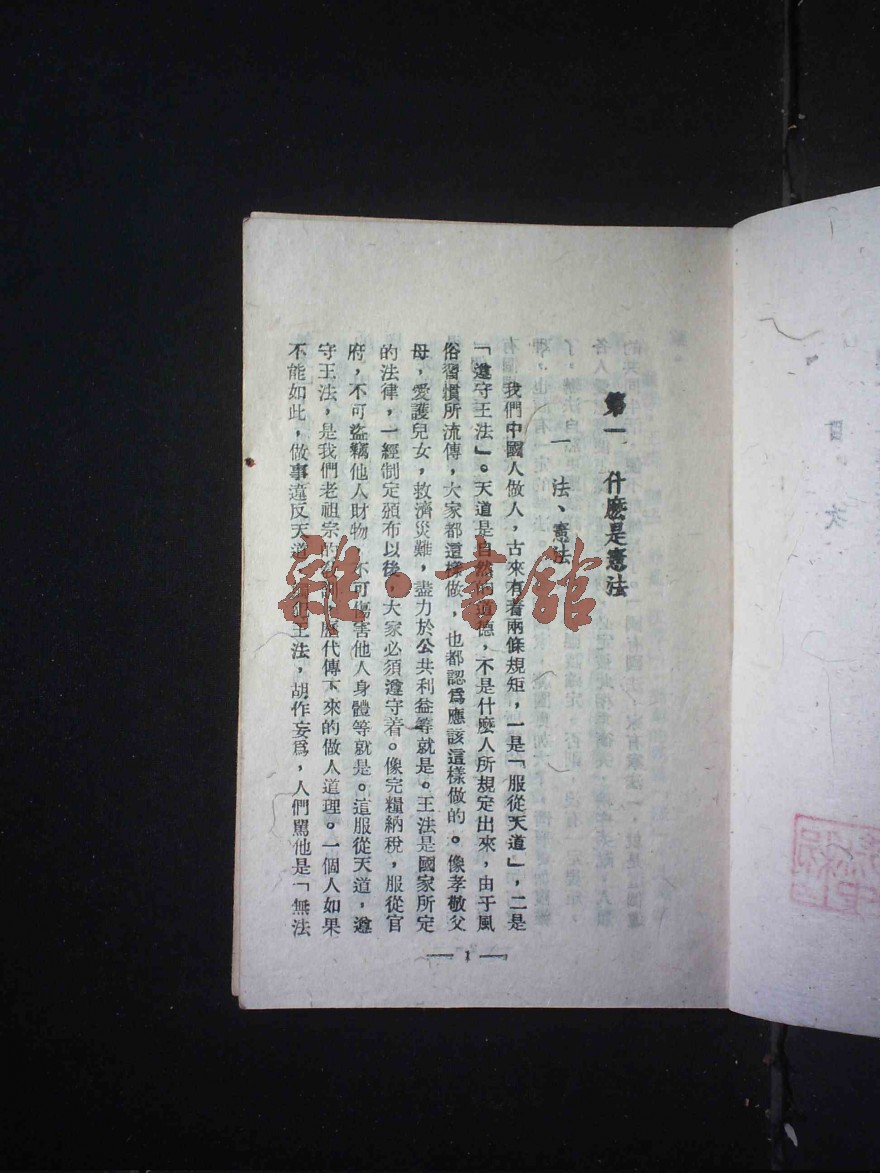 目次
第一　什麽是憲法
一　法、憲法
我們中國人做人，古來有着兩條規矩，一是「服從天道」，二是
「遵守王法」。天道是自然的道德，不是什麽人所規定出來，由于風
俗習慣所流傳，大家都這樣做，也都認爲應該這樣做的。像孝敬父
母，愛護兒女，救濟災難，盡力於公共利益等就是。王法是國家所定
的法律，一經制定頒布以後，大家必須遵守着。像完糧納稅，服從官
府，不可盜竊他人財物，不可傷害他人身體等就是。這服從天道，遵
守王法，是我們老祖宗的 歷代傳下來的做人道理。一個人如果
不能如此，做事違反天道， 犯王法，胡作妄爲，人們駡他是「無法
— 1 —
雜·書館